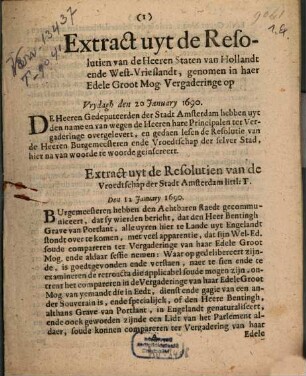 (1)
Extract uyt de Reso-
lutien van de Heeren Staten van Hollandt
ende West-Vrieslandt, genomen in haer
Edele Groot Mog. Vergaderinge op
Vrydagh den 20 January 1690.
DE Heeren Gedeputeerden der Stadt Amsterdam hebben uyt
den name en van wegen de Heeren hare Principalen ter Ver-
gaderinge overgelevert, en gedaen lesen de Resolutie van
de Heeren Burgemeesteren ende Vroedtschap der selver Stad,
hier na van woorde te woorde geinsereert.
Extract uyt de Resolutien van de
Vroedtschap der Stadt Amsterdam littr T.
Den 12 January 1690.
BUrgemeesteren hebben den Achtbaren Raedt gecommu-
niceert, dat sy wierden bericht, dat den Heer Bentingh
Grave van Portlant, alle uyren hier te Lande uyt Engelandt
stondt over te komen, met veel apparentie, dat sijn Wel-Ed.
soude compareren ter Vergaderinge van haer Edele Groot
Mog. ende aldaer sessie nemen: Waer op gedelibereert zijn-
de, is goedtgevonden ende verstaen, nate te sien ende te
examineren de retroacta die applicabel soude mogen zijn, on-
trent het compareren in de Vergaderinge van haer Edele Groot
Mog. van yemandt die in Eedt, dienst ende gagie van een an-
der Souverain is, ende specialijck, of den Heere Bentingh,
althans Grave van Portlant, in Engelandt genaturaliseert,
ende oock geworden zijnde een Lidt van het Parlement al-
daer, soude konnen compareren ter Vergadering van haer
Edele